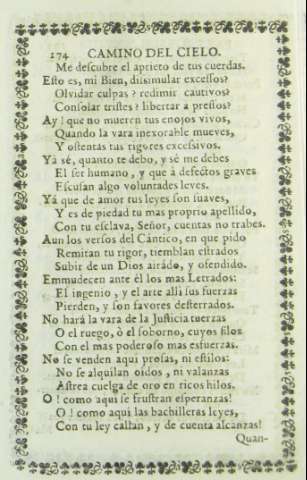 174 CAMINO DEL CIELO.
Me descubre el aprieto de tus cuerdas.
Eſto es, mi Bien, diſsimular exceſſos?
Olvidar culpas? redimir cautivos?
Conſolar triſtes? libertar a preſſos?
Ay! que no mueren tus enojos vivos,
Quando la vara inexorable mueves,
Y oſtentas tus rigores exceſsivos.
Yà sé, quanto te debo, y sé me debes
El ser humano, y que à defectos graves
Eſcuſan algo voluntades leves.
Yà que de amor tus leyes ſon ſuaves,
Y es de piedad tu mas proprio apellido,
Con tu eſclava, Señor, cuentas no trabes.
Aun los verſos del Cántico, en que pido
Remitan tu rigor, tiemblan eſtrados
Subir de un Dios airádo, y ofendido.
Emmudecen ante él los mas Letrados:
El ingenio, y el arte allí ſus fuerzas
Pierden, y ſon favores deſterrados.
No hará la vara de la Juſticia tuerzas
O el ruego, ò el ſoborno, cuyos filos
Con el mas poderoſo mas esfuerzas.
No ſe venden aqui proſas, ni eſtilos:
No ſe alquilan oídos, ni valanzas
Aſtrea cuelga de oro en ricos hilos.
O! como aqui ſe fruſtran eſperanzas!
O! como aqui las bachilleras leyes,
Con tu ley callan, y de cuenta alcanzas!
Quan-